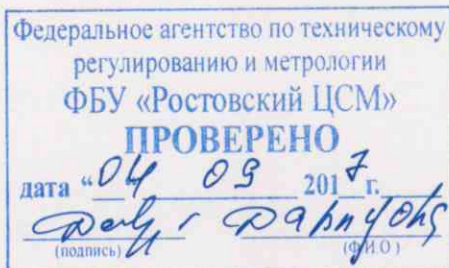 Федеральное агентство по техническому
регулированию и метрологии
ФБУ «Ростовский ЦСМ»
ПРОВЕРЕНО
дата “04 09 2017 г.
(подпись) (Ф.И.О)